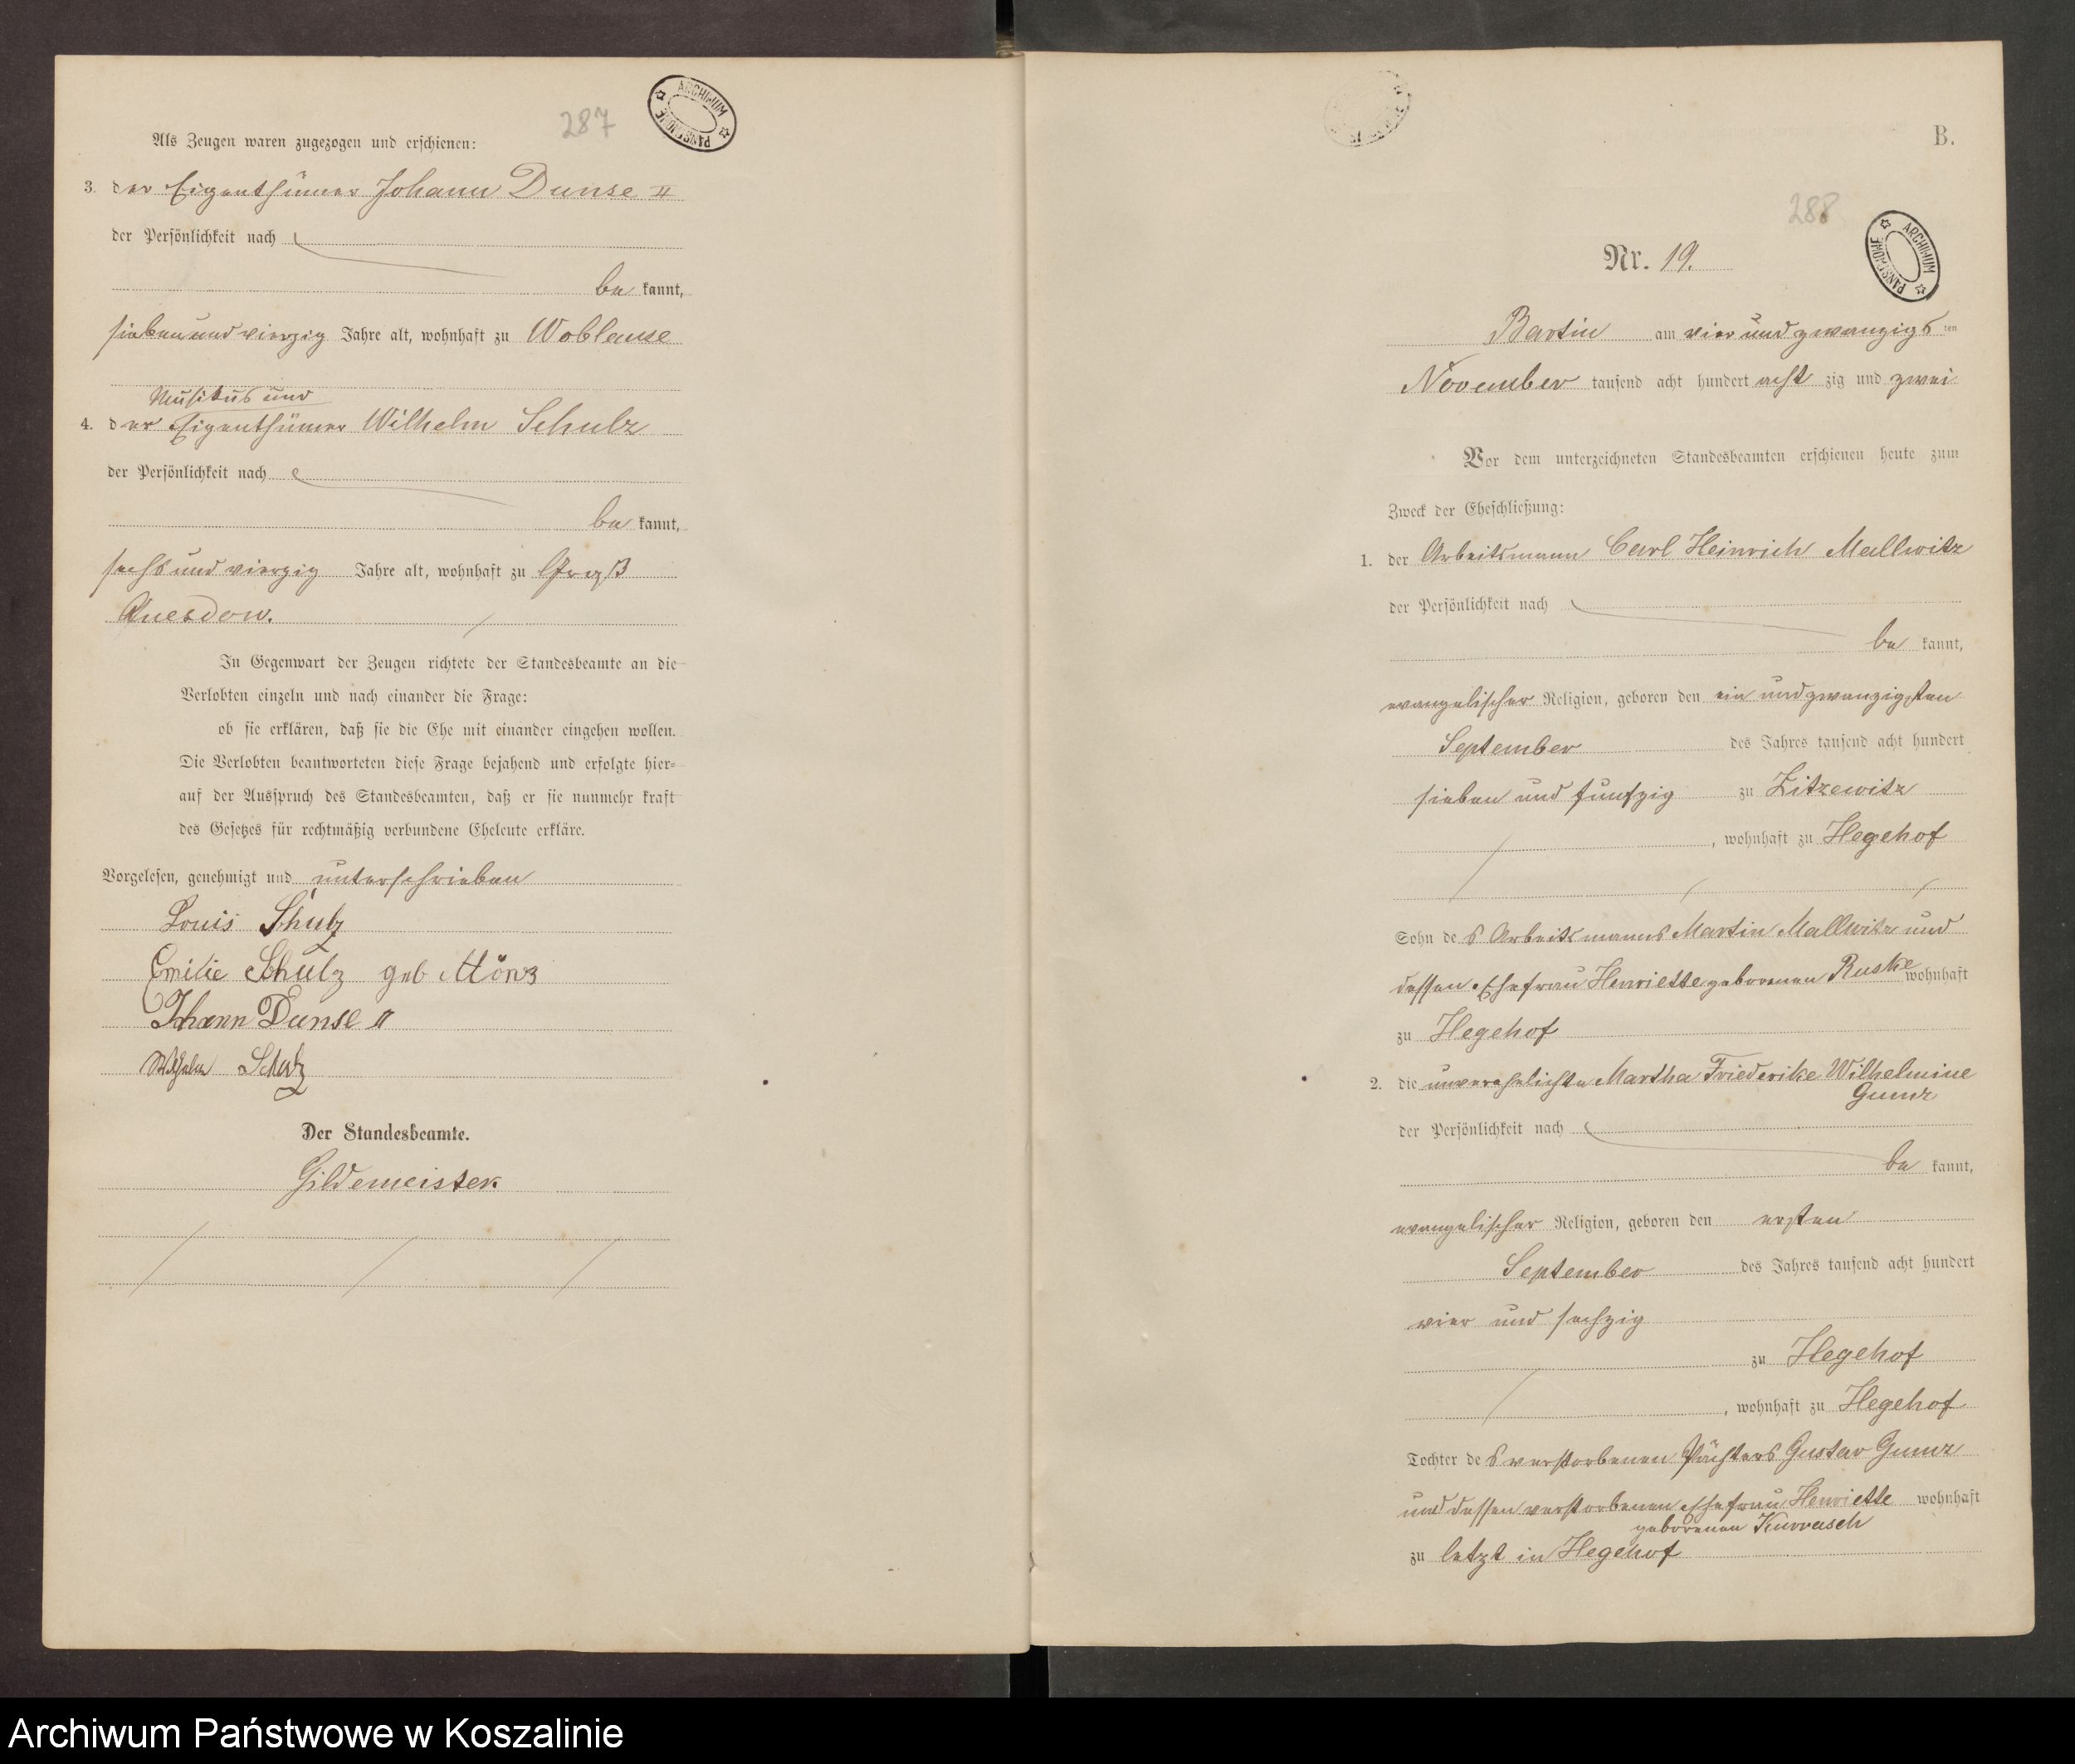 287
ARCHIWUM PAŃSTWOWE
Als Zeugen waren zugezogen und erschienen:
3. der Eigenthümer Johann Dunse II
der Persönlichkeit nach
be kannt,
siebenundvierzig Jahre alt, wohnhaft zu Woblanse
Musikus und
4. der Eigenthümer Wilhelm Schulz
der Persönlichkeit nach
be kannt,
sechsundvierzig Jahre alt, wohnhaft zu Groß
Quesdow.
In Gegenwart der Zeugen richtete der Standesbeamte an die
Verlobten einzeln und nach einander die Frage:
ob sie erklären, daß sie die Ehe mit einander eingehen wollen.
Die Verlobten beantworteten diese Frage bejahend und erfolgte hier-
auf der Ausspruch des Standesbeamten, daß er sie nunmehr kraft
des Gesetzes für rechtmäßig verbundene Eheleute erkläre.
Vorgelesen, genehmigt und unterschrieben
Louis Schulz
Emilie Schulz geb
Johann Dunse II
Wilhelm Schulz
Der Standesbeamte.
Gildemeister.
B.
288
ARCHIWUM PAŃSTWOWE
Nr. 19.
Bartin am vier und zwanzigs ten
November tausend acht hundert acht zig und zwei
Vor dem unterzeichneten Standesbeamten erschienen heute zum
Zweck der Eheschließung:
1. der Arbeitsmann Carl Heinrich Mallwitz
der Persönlichkeit nach
be kannt,
evangelischer Religion, geboren den ein und zwanzigsten
September des Jahres tausend acht hundert
sieben und funfzig zu Zitzewitz
, wohnhaft zu Hegehof
Sohn des Arbeitsmanns Martin Mallwitz und
dessen Ehefrau Henriette geborenen Ruske wohnhaft
zu Hegehof
2. die unverehelichte Martha Friederike Wilhelmine
Gumz
der Persönlichkeit nach
be kannt,
evangelischer Religion, geboren den ersten
September des Jahres tausend acht hundert
vier und sechzig
zu Hegehof
, wohnhaft zu Hegehof
Tochter des verstorbenen Pächters Gustav Gumz
und dessen verstorbenen Ehefrau Henriette wohnhaft
geborenen Kurrasch
zu letzt in Hegehof
Archiwum Państwowe w Koszalinie